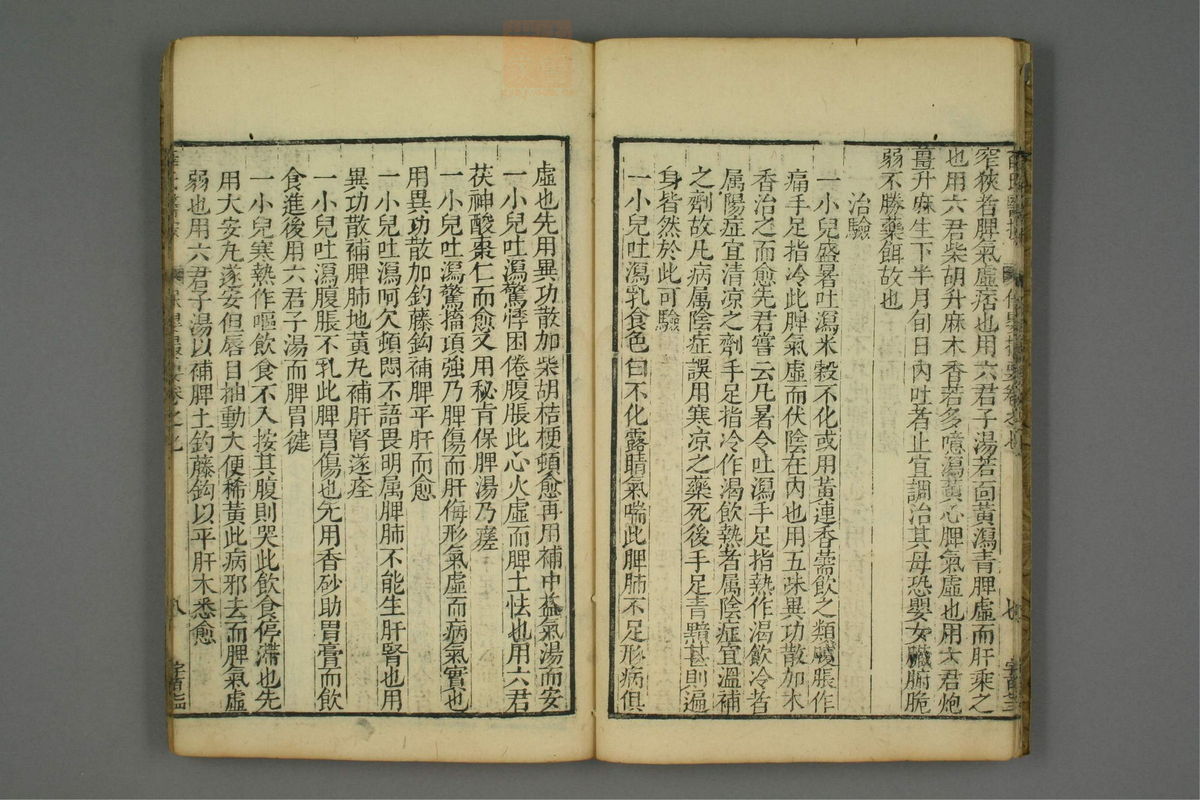 窄狹者脾氣虛痞也用六君子湯若面黃瀉青脾虛而肝乘之
也用六君柴胡升麻木香若多噫瀉黃心脾氣虛也用六君炮
薑升麻生下半月旬日內吐者止宜調治其母恐嬰女臟腑脆
弱不勝藥餌故也
治驗
一小兒盛暑吐瀉米穀不化或用黃連香薷飲之類腹脹作
痛手足指冷此脾氣虛而伏陰在內也用五味異功散加木
香治之而愈先君嘗云凡暑令吐瀉手足指熱作渴飲冷者
属陽症宜清凉之劑手足指冷作渴飲熱者属陰症宜溫補
之劑故凡病属陰症誤用寒凉之藥死後手足青黯甚則遍
身皆然於此可驗
一小兒吐瀉乳食色白不化露睛氣喘此脾肺不足形病俱
虛也先用異功散加柴胡桔梗頓愈再用補中益氣湯而安
一小兒吐瀉驚悸困倦腹脹此心火虛而脾土怯也用六君
茯神酸棗仁而愈又用秘肯保脾湯乃瘥
一小兒吐瀉驚搐項強乃脾傷而肝侮形氣虛而病氣實也
用異功散加釣藤鈎補脾平肝而愈
一小兒吐瀉呵欠頓悶不語畏明属脾肺不能生肝腎也用
異功散補脾肺地黃丸補肝腎遂痊
一小兒吐瀉腹脹不乳此脾胃傷也先用香砂助胃膏而飲
食進後用六君子湯而脾胃健
一小兒寒熱作嘔飲食不入按其腹則哭此飲食停滯也先
用大安丸遂安但唇目抽動大便稀黃此病邪去而脾氣虛
弱也用六君子湯以補脾土釣藤鈎以平肝木悉愈